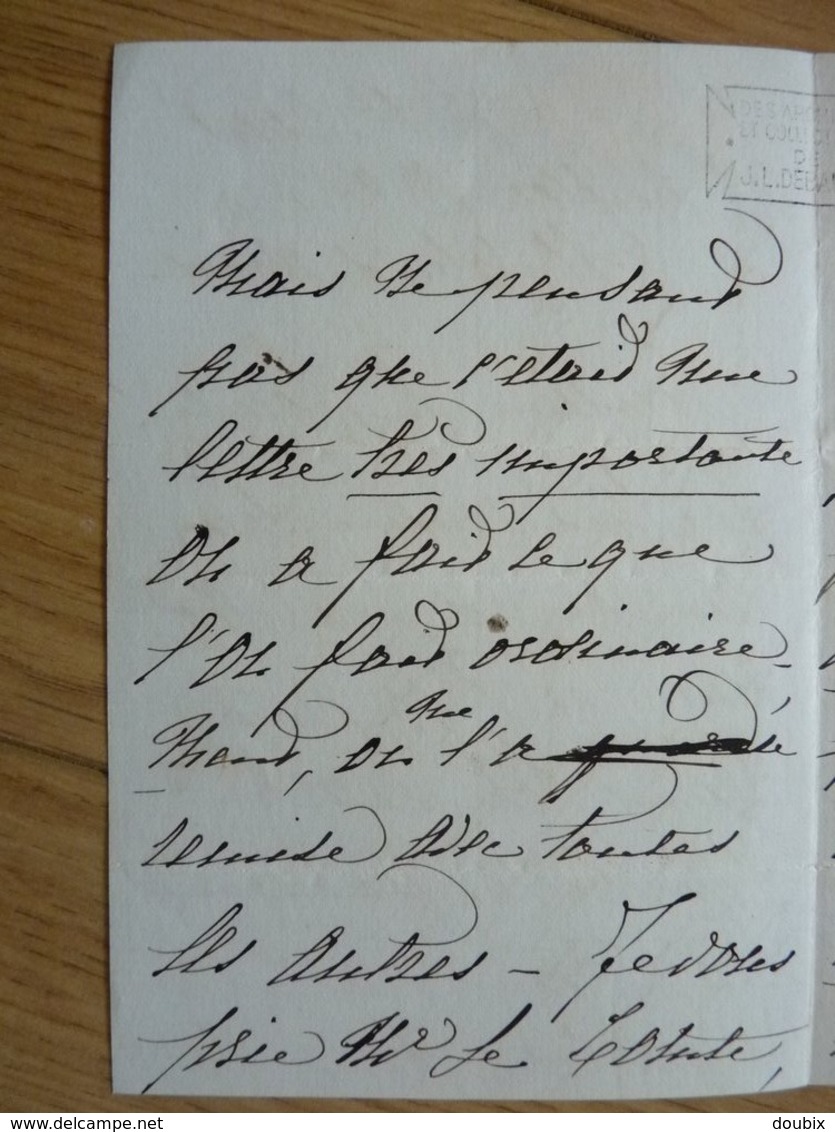 DES
ET
DE
J.L.DEB
Mais ne pensant
pas que c'etait une
lettre très importante
on a fait ce que
l'on fait ordinaire-
ment, on me l'a
remise avec toutes
les autres – Je vous
prie Mr le Comte,
delcampe.net
doubix